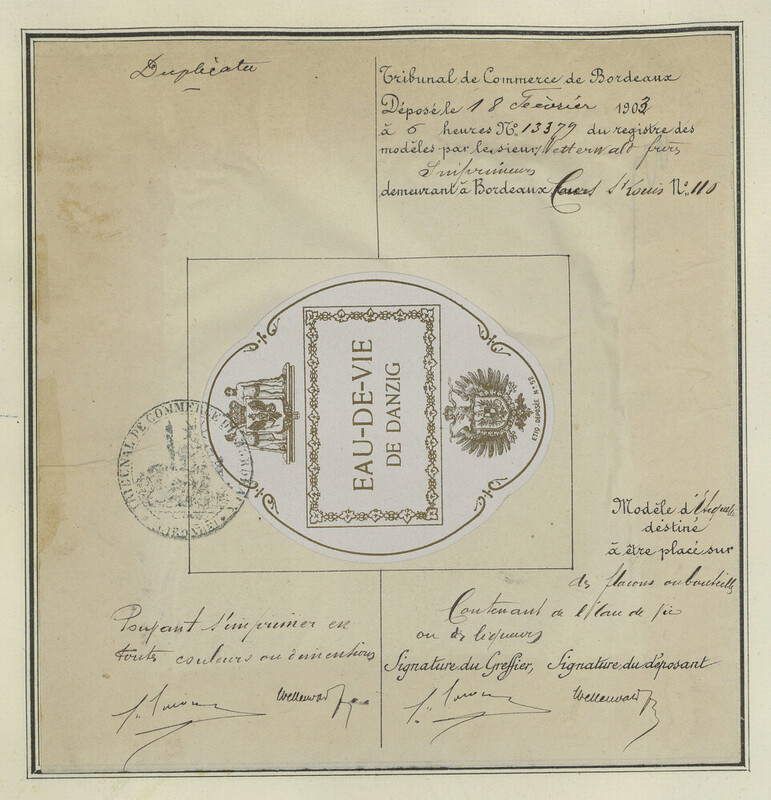 Duplicata
Tribunal de Commerce de Bordeaux
Déposé le 18 Février 1903
à 6 heures No. 13379 du registre des
modèles par le sieur Wetterwald frères
Imprimeurs
demeurant à Bordeaux Cours St Louis No. 110
EAU-DE-VIE
DE DANZIG
ETTQ. DÉPOSÉE No. 52
TRIBUNAL DE COMMERCE DE BORDEAUX
(GIRONDE)
Modèle d'Etiquette
destiné
à être placé sur
des flacons ou bouteilles
Contenant de l'Eau de vie
ou des liqueurs
Pouvant s'imprimer en
toutes couleurs ou dimentions
Signature du Greffier, Signature du déposant
Wetterwald
Wetterwald